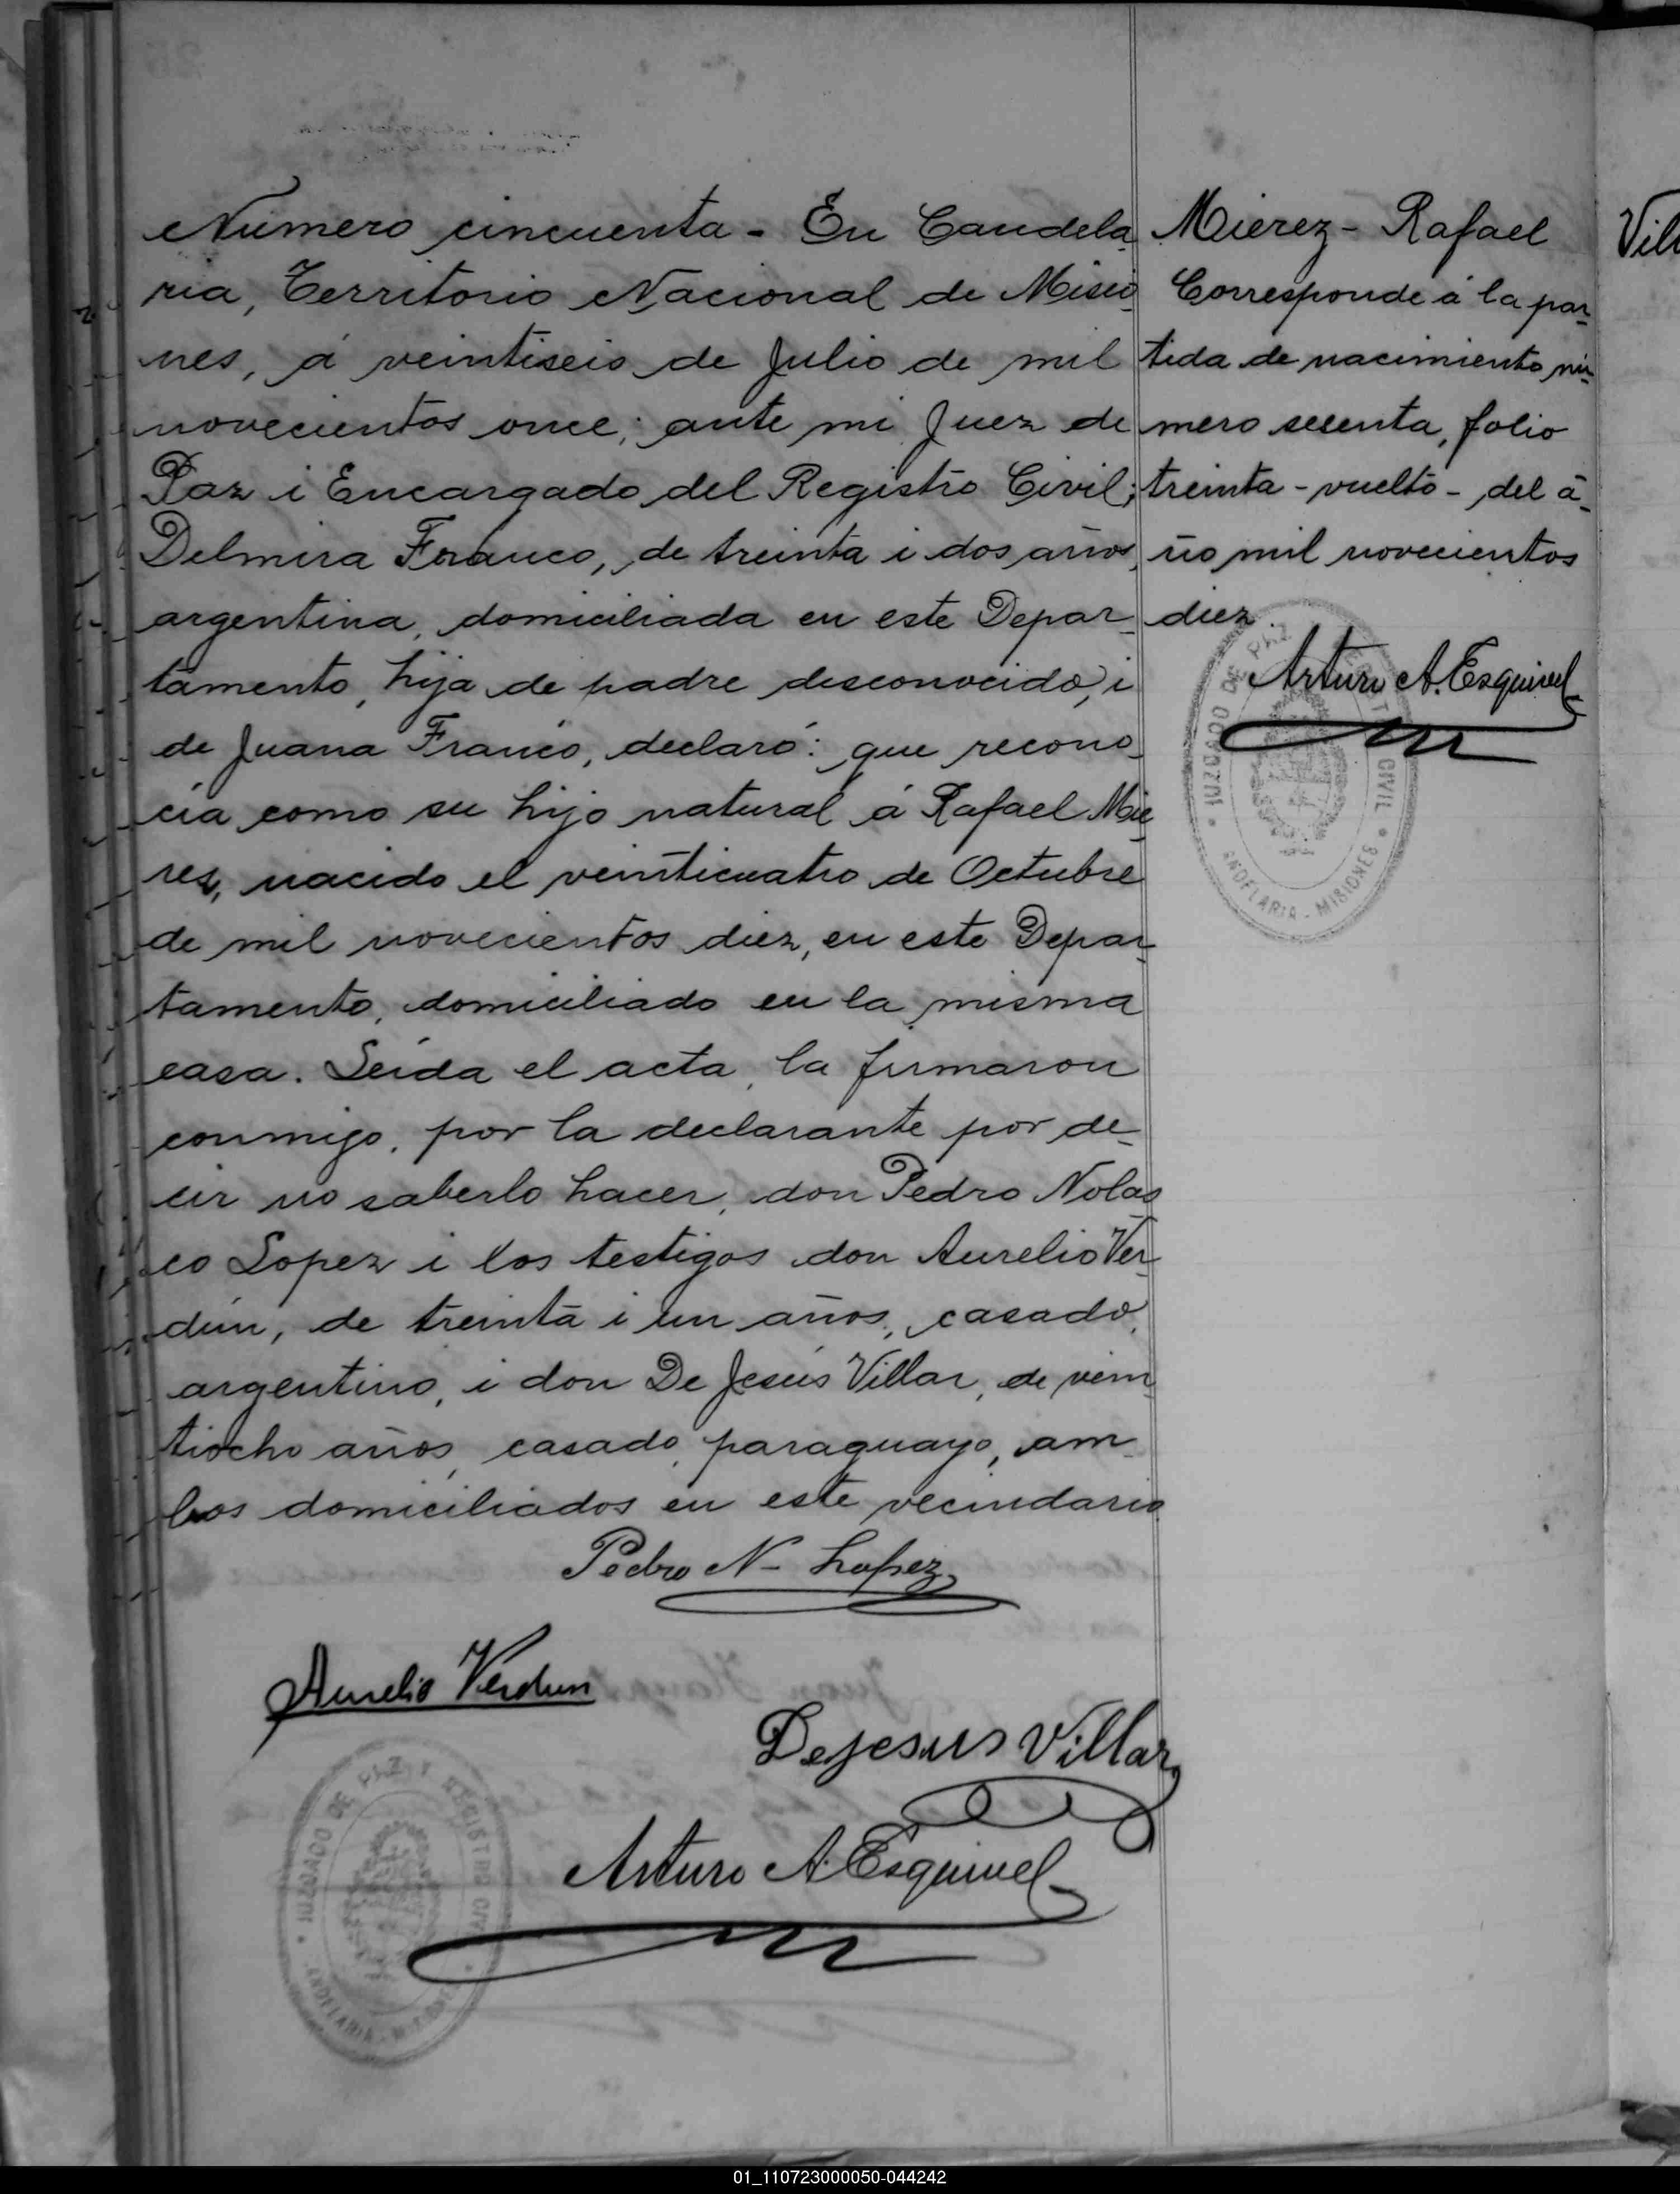 Número cincuenta - En Candela
ria, Territorio Nacional de Misio
nes, á veintiseis de Julio de mil
novecientos once; ante mi Juez de
Paz i Encargado del Registro Civil;
Delmira Franco, de treinta i dos años,
argentina, domiciliada en este Depar
tamento, hija de padre desconocido, i
de Juana Franco, declaró: que recono
cía como su hijo natural á Rafael Mie
rez, nacido el veinticuatro de Octubre
de mil novecientos diez, en este Depar
tamento, domiciliado en la misma
casa. Leída el acta, la firmaron
conmigo, por la declarante por de
cir no saberlo hacer, don Pedro Nolas
co Lopez i los testigos don Aurelio Ver
dún, de treinta i un años, casado,
argentino, i don De Jesús Villar, de vein
tiocho años, casado, paraguayo, am
bos domiciliados en este vecindario
Pedro N- Lopez
Aurelio Verdun
Dejesus Villar
Arturo A. Esquivel
JUZGADO DE PAZ Y REGISTRO CIVIL
CANDELARIA - MISIONES
Mierez - Rafael
Corresponde á la par
tida de nacimiento nú
mero sesenta, folio
treinta - vuelto - del a
ño mil novecientos
diez.
Arturo A. Esquivel
JUZGADO DE PAZ
CIVIL
ANDELARIA - MISIONES
Vill
01_110723000050-044242